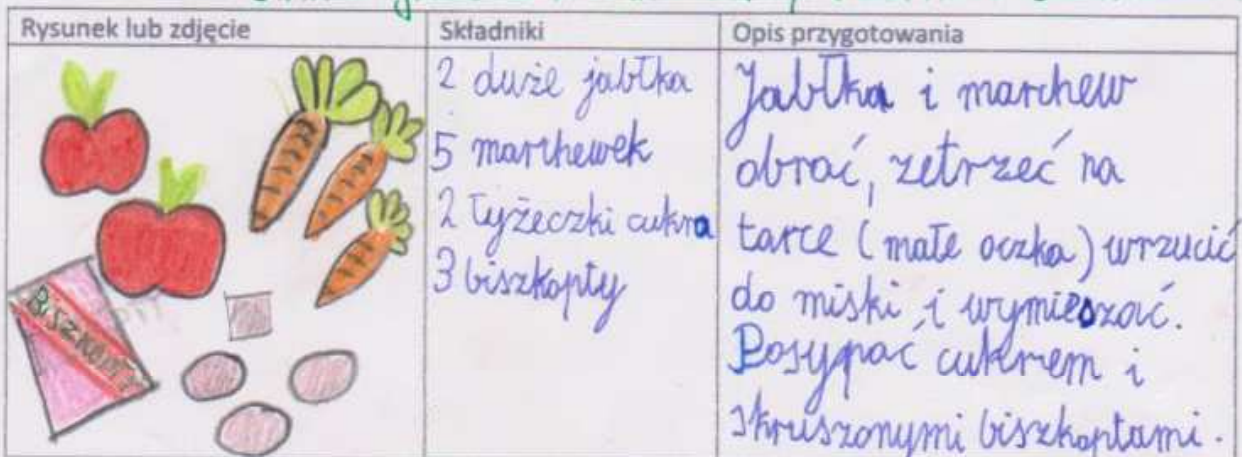 Rysunek lub zdjęcie
Składniki
Opis przygotowania
2 duże jabłka
5 marchewek
2 łyżeczki cukra
3 biszkopty
Jabłka i marchew
obrać, zetrzeć na
tarce (małe oczka) wrzucić
do miski i wymieszać.
Posypać cukrem i
skruszonymi biszkoptami.
BISZKOPTY